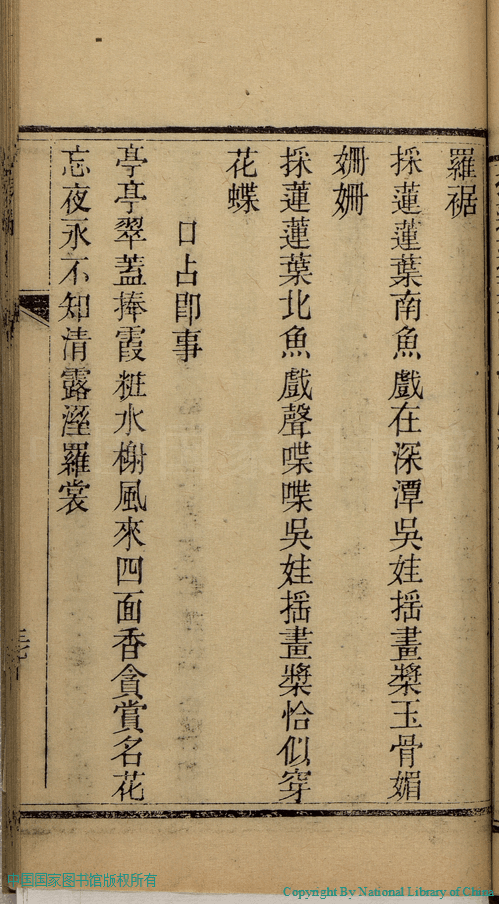 羅裾
採蓮蓮葉南魚戲在深潭吳娃揺畫槳玉骨媚
姍姍
採蓮蓮葉北魚戲聲喋喋吳娃揺畫槳恰似穿
花蝶
口占即事
亭亭翠蓋捧霞粧水榭風來四面香貪賞名花
忘夜永不知清露溼羅裳
中国国家图书馆版权所有
Copyright By National Library of China